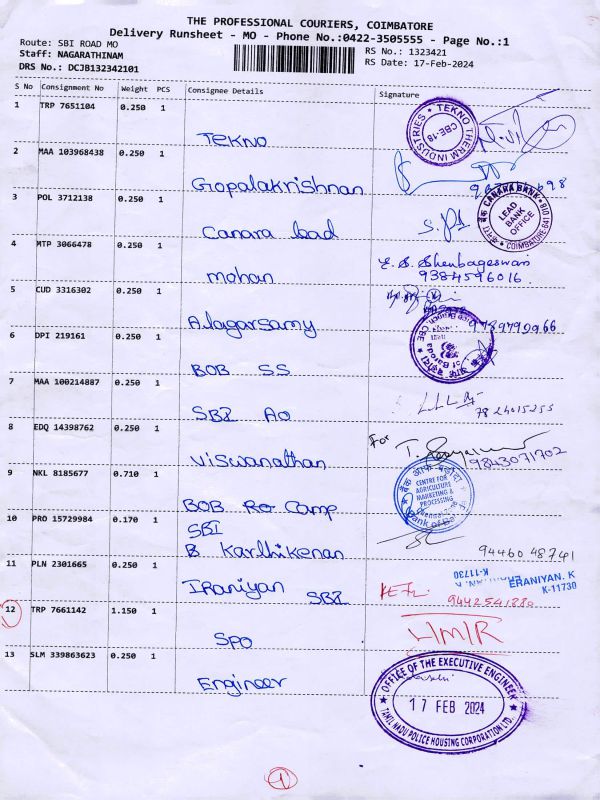 THE PROFESSIONAL COURIERS, COIMBATORE
Delivery Runsheet - MO - Phone No.:0422-3505555 - Page No.:1
Route: SBI ROAD MO
Staff: NAGARATHINAM
DRS No.: DCJB132342101
RS No.: 1323421
RS Date: 17-Feb-2024
S No Consignment No Weight PCS Consignee Details Signature
1 TRP 7651104 0.250 1
Tekno
TEKNO THERM INDUSTRIES CBE-18
2 MAA 103968438 0.250 1
Gopalakrishnan
3 POL 3712138 0.250 1
Canara lead
CANARA BANK LEAD BANK OFFICE
4 MTP 3066478 0.250 1
mohan
E. S. Shenbageswari
9384596016.
5 CUD 3316302 0.250 1
Alagarsamy
6 DPI 219161 0.250 1
BOB SS
7 MAA 100214887 0.250 1
SBI Ao
7824015255
8 EDQ 14398762 0.250 1
Viswanathan
For
9843071702
9 NKL 8185677 0.710 1
BOB Ro Camp
CENTRE FOR AGRICULTURE MARKETING & PROCESSING
10 PRO 15729984 0.170 1
SBI
B Karthikenan
94460 48741
11 PLN 2301665 0.250 1
Iraniyan SBI
ERANIYAN. K
K-11730
K-11730
12 TRP 7661142 1.150 1
SPO
13 SLM 339863623 0.250 1
Engineer
OFFICE OF THE EXECUTIVE ENGINEER
17 FEB 2024
TAMIL NADU POLICE HOUSING CORPORATION LTD.
1